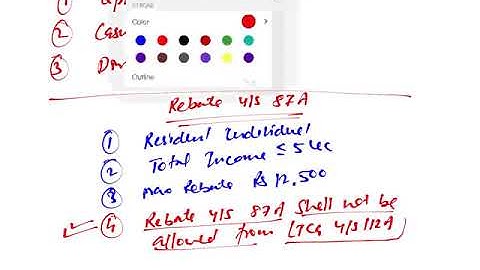 ①
② Casu
③
STROKE
Color
Outline
Rebate u/s 87A
① Resident Individual
② Total Income ≤ 5 lac
③ Max Rebate Rs 12,500
④ Rebate u/s 87A shall not be
allowed from LTCG u/s 112A